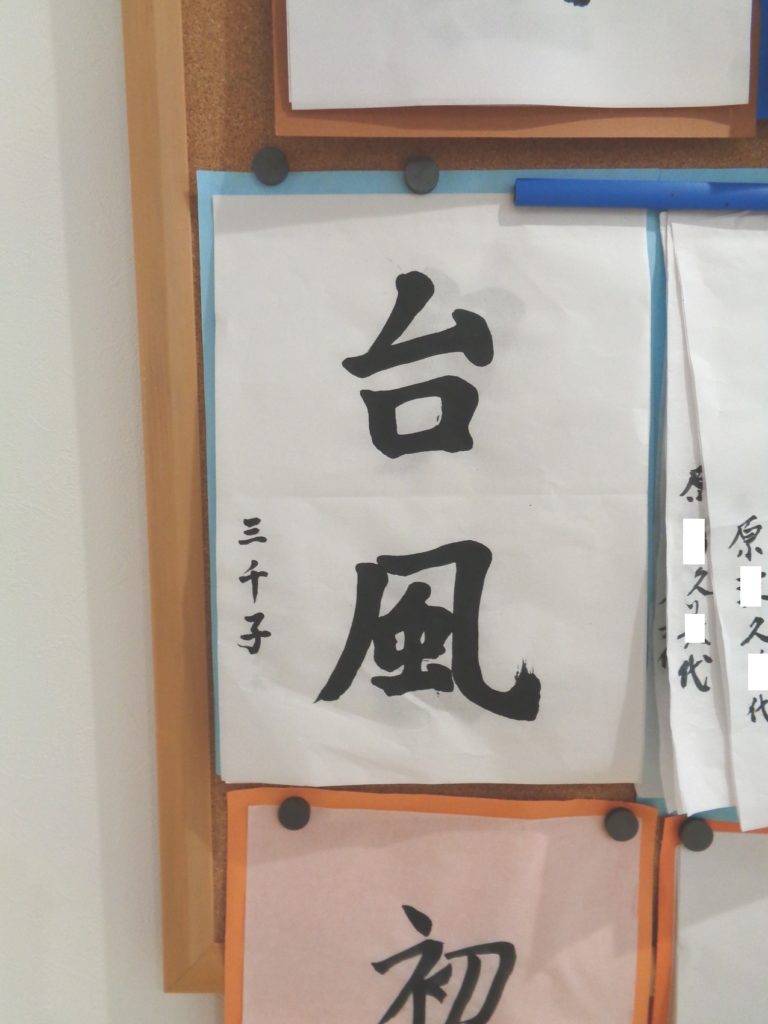 台風
三千子
初
原
久
代
原
久
代